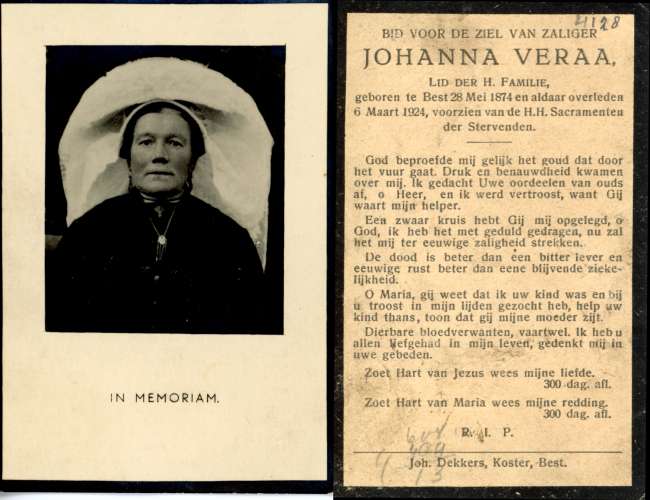 IN MEMORIAM.
4128
BID VOOR DE ZIEL VAN ZALIGER
JOHANNA VERAA,
LID DER H. FAMILIE,
geboren te Best 28 Mei 1874 en aldaar overleden
6 Maart 1924, voorzien van de H.H. Sacramenten
der Stervenden.
God beproefde mij gelijk het goud dat door
het vuur gaat. Druk en benauwdheid kwamen
over mij. Ik gedacht Uwe oordeelen van ouds
af, o Heer, en ik werd vertroost, want Gij
waart mijn helper.
Een zwaar kruis hebt Gij mij opgelegd, o
God, ik heb het met geduld gedragen, nu zal
het mij ter eeuwige zaligheid strekken.
De dood is beter dan een bitter leven en
eeuwige rust beter dan eene blijvende zieke-
lijkheid.
O Maria, gij weet dat ik uw kind was en bij
u troost in mijn lijden gezocht heb, help uw
kind thans, toon dat gij mijne moeder zijt.
Dierbare bloedverwanten, vaartwel. Ik heb u
allen liefgehad in mijn leven, gedenkt mij in
uwe gebeden.
Zoet Hart van Jezus wees mijne liefde.
300 dag. afl.
Zoet Hart van Maria wees mijne redding.
300 dag. afl.
R. I. P.
Joh. Dekkers, Koster, Best.